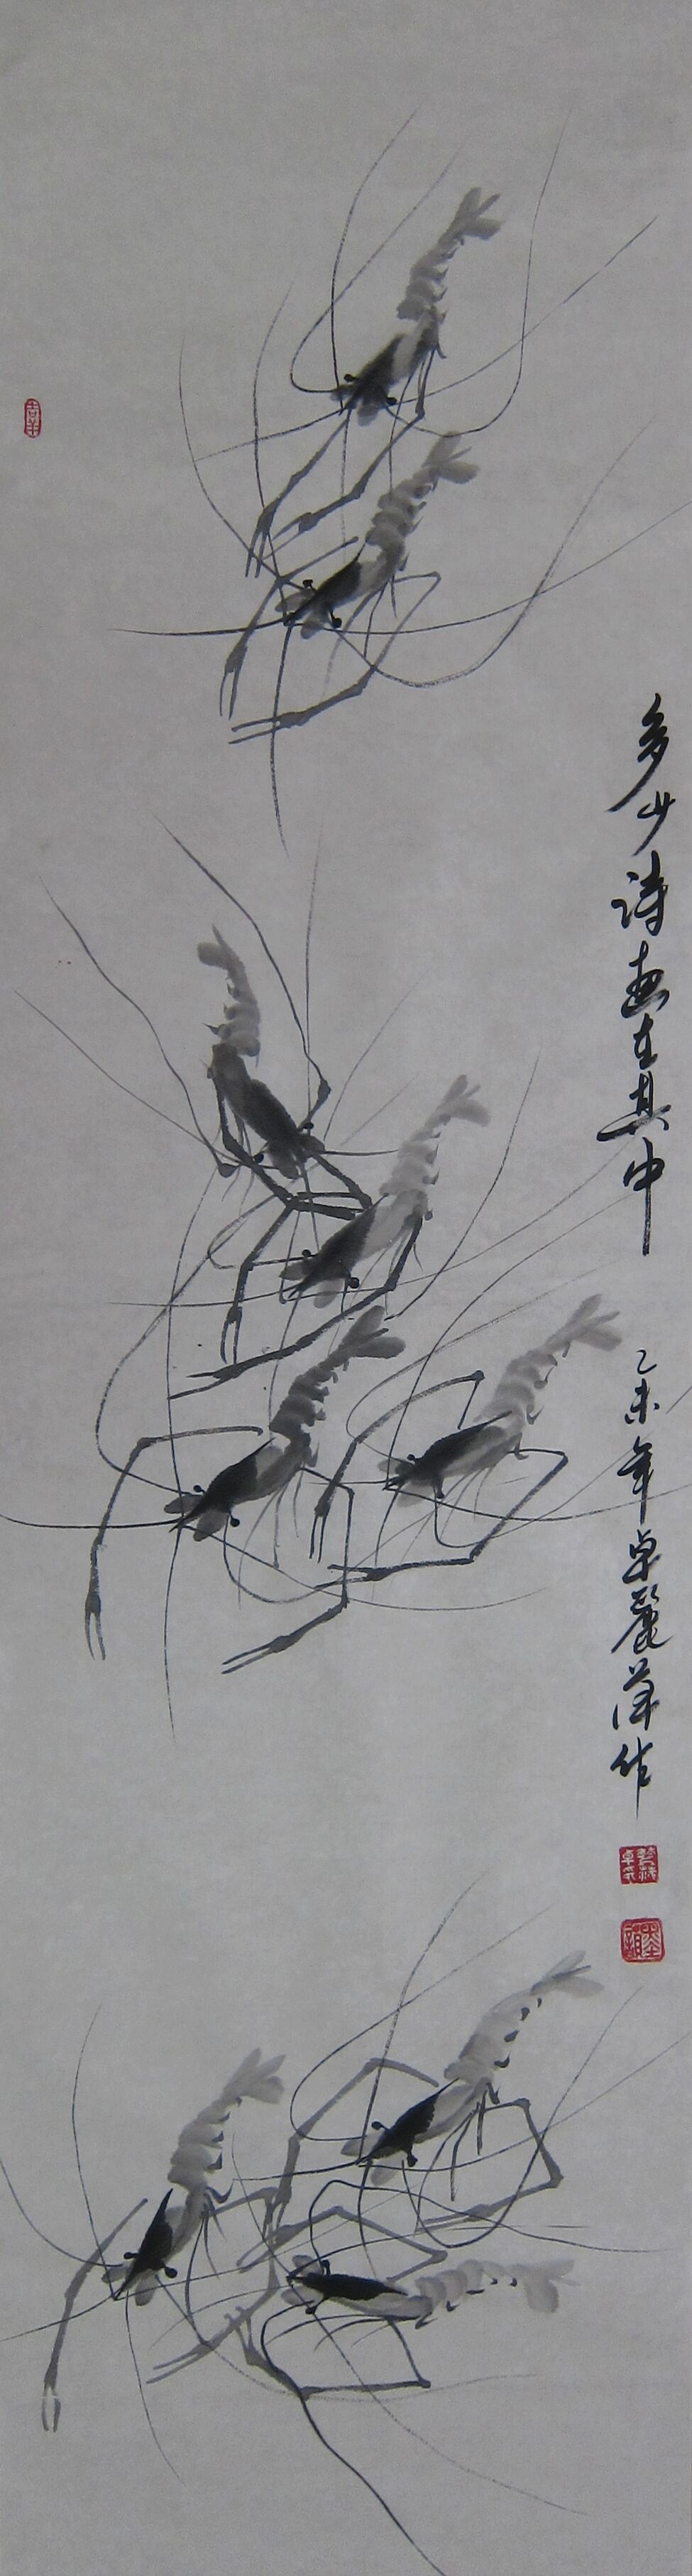 多少诗画在其中
乙未年卓丽萍作